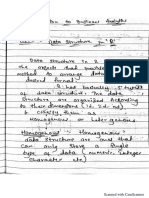 to Business Analytics
Unit - Data Structure in 'R'
Data Structure in R
the objects that provide
method to arrange data
desired format.
R has mainly 5 types
of data structure. The data
Structure are organized According
to their dimensions (1d, 2d etc)
& classify them as
Homogenous or heterogenous
Homogenous - Homogenous
data structure are that
Can only Store a Single
type of data (numeric, Integer
Character etc)
Scanned with CamScanner